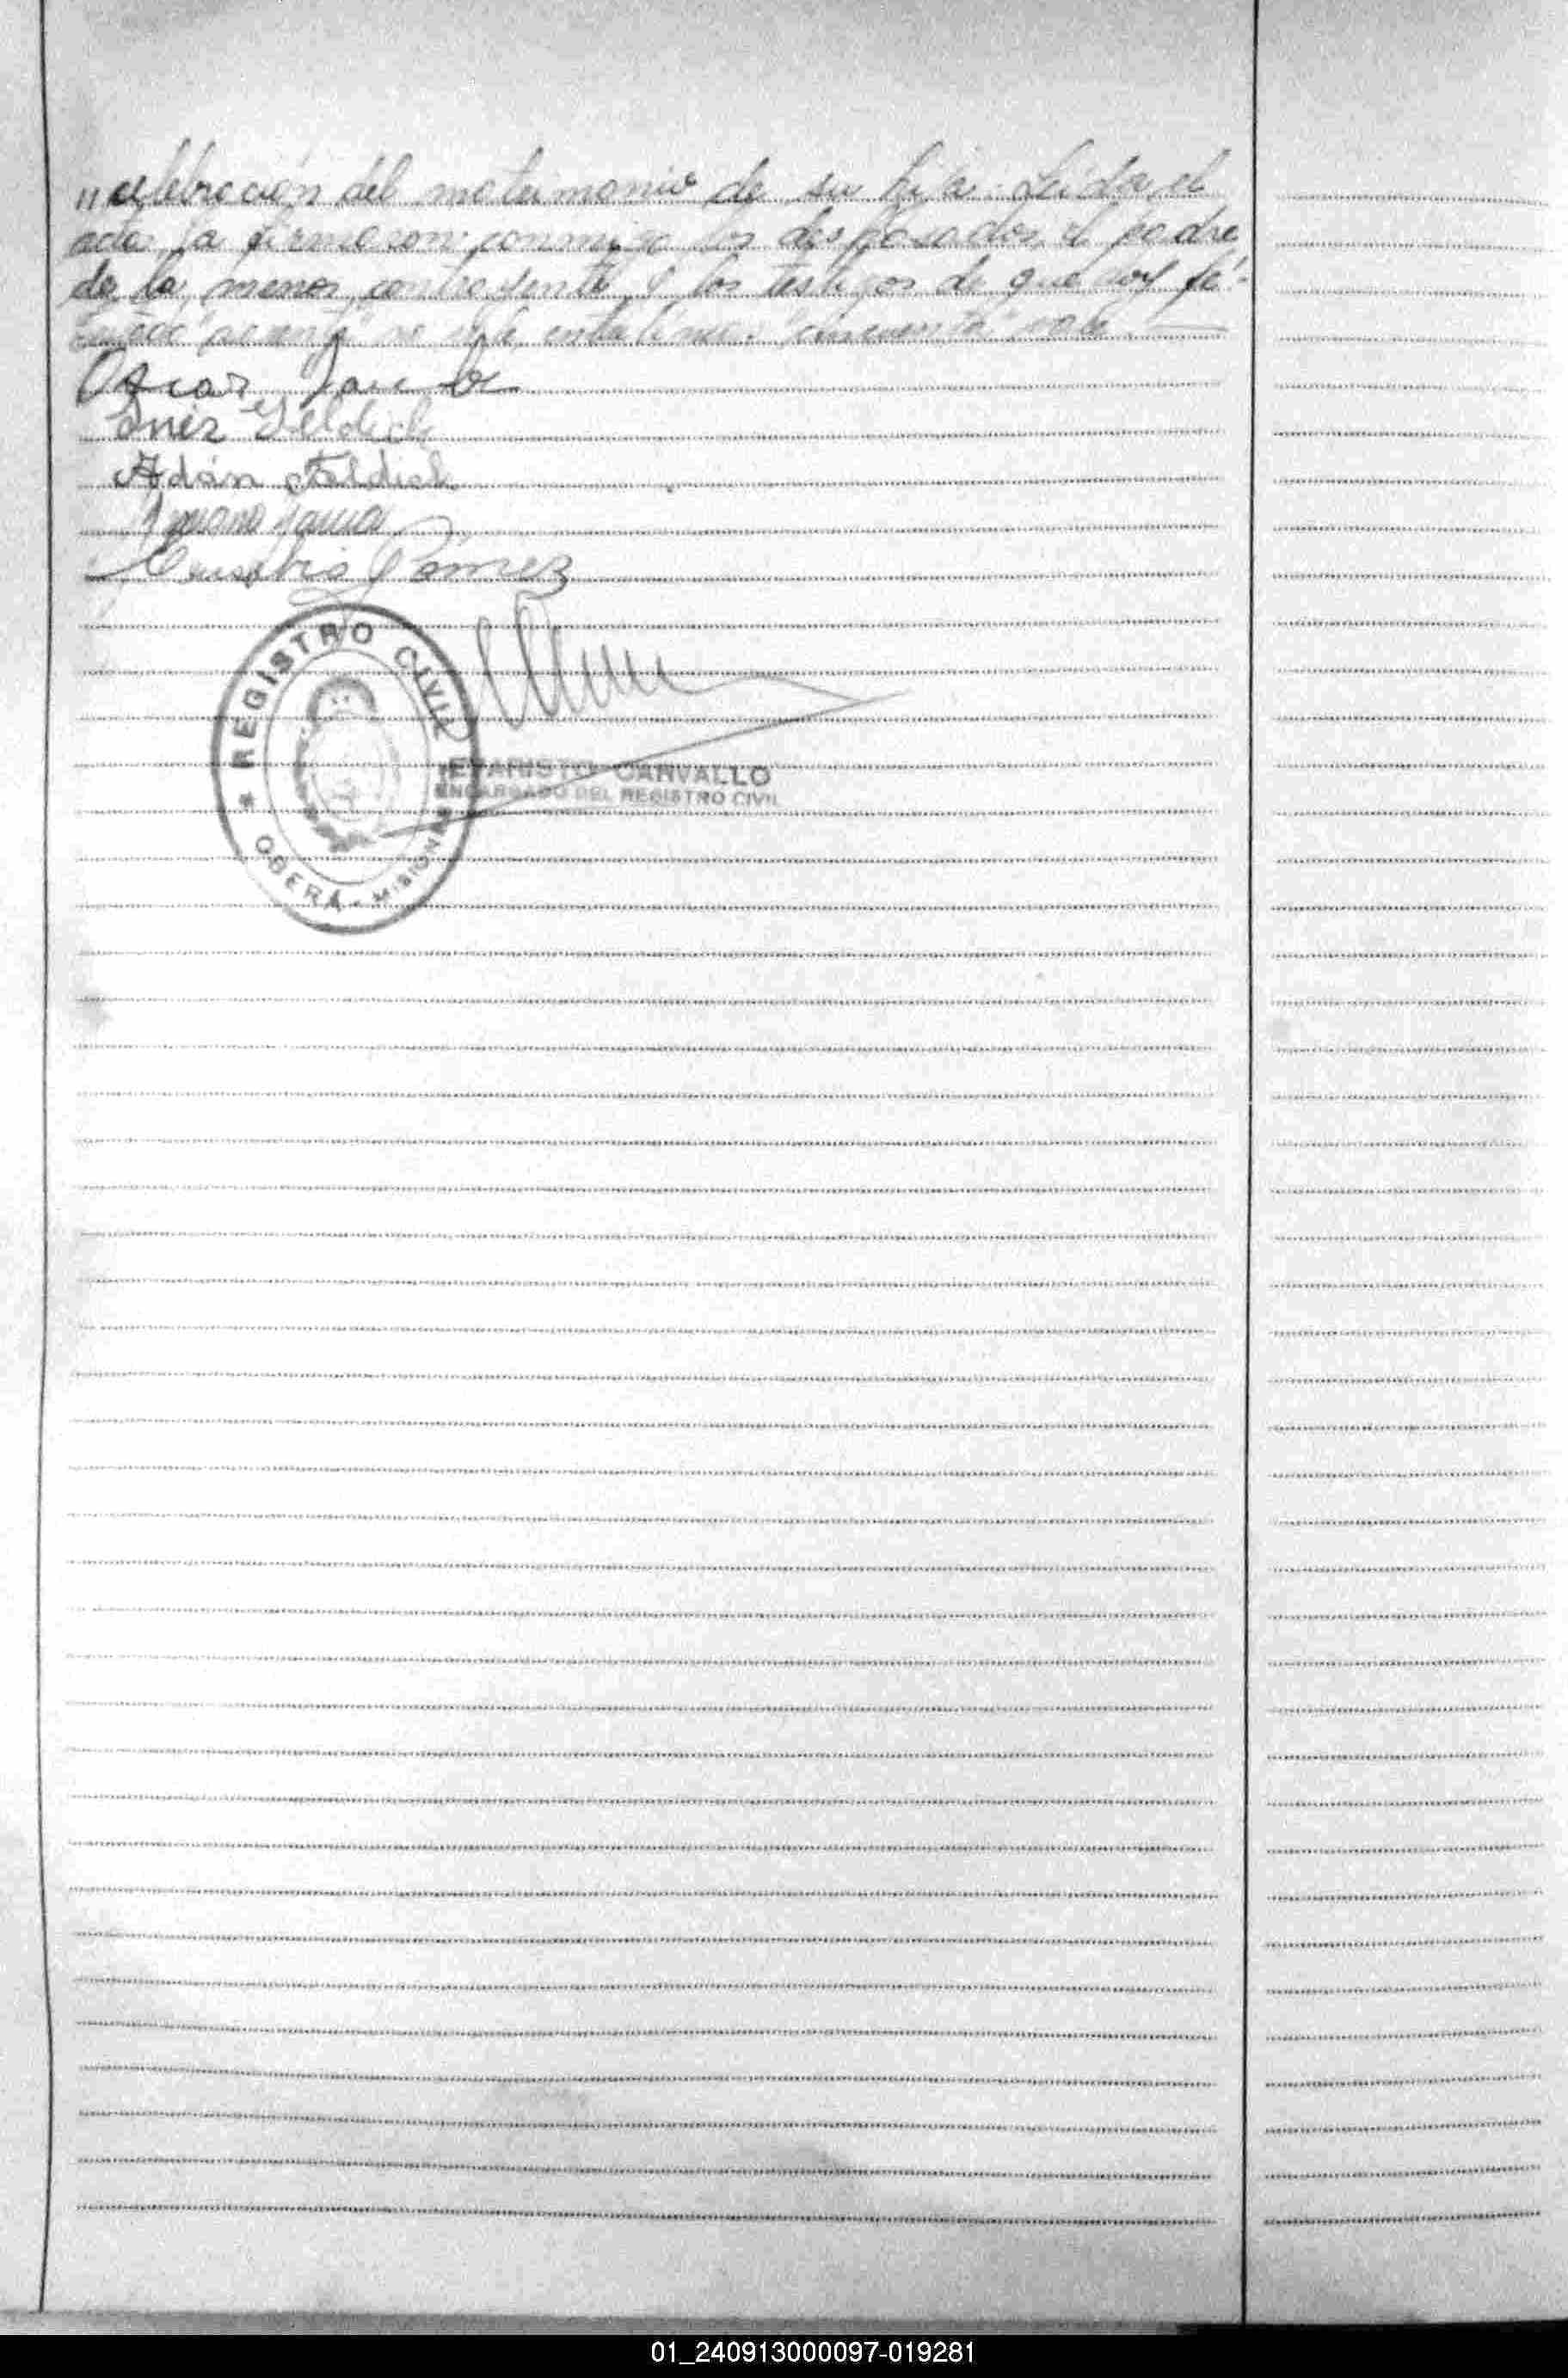 "celebración del matrimonio de su hija. Leida el
acta, la firmaron conmigo los desposados, el padre
de la menor contrayente y los testigos de que doy fé.-
no vale, entre lineas: "cincuenta" vale.
Oscar
Inés Feldich
Adán Feldich
Eusebio Gómez
REGISTRO CIVIL
* OBERÁ - MISIONES
EVARISTO CARVALLO
ENCARGADO DEL REGISTRO CIVIL
01_240913000097-019281